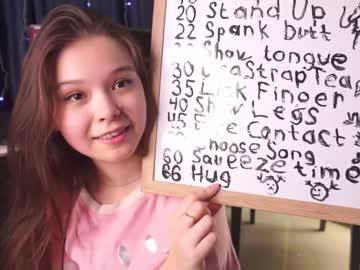 20 Stand Up
22 Spank butt
Show tongue
30 Bra Strap Tea
35 Lick Finger
40 Show Legs
45 Eye Contact
Choose Song
60 Squeeze time
66 Hug